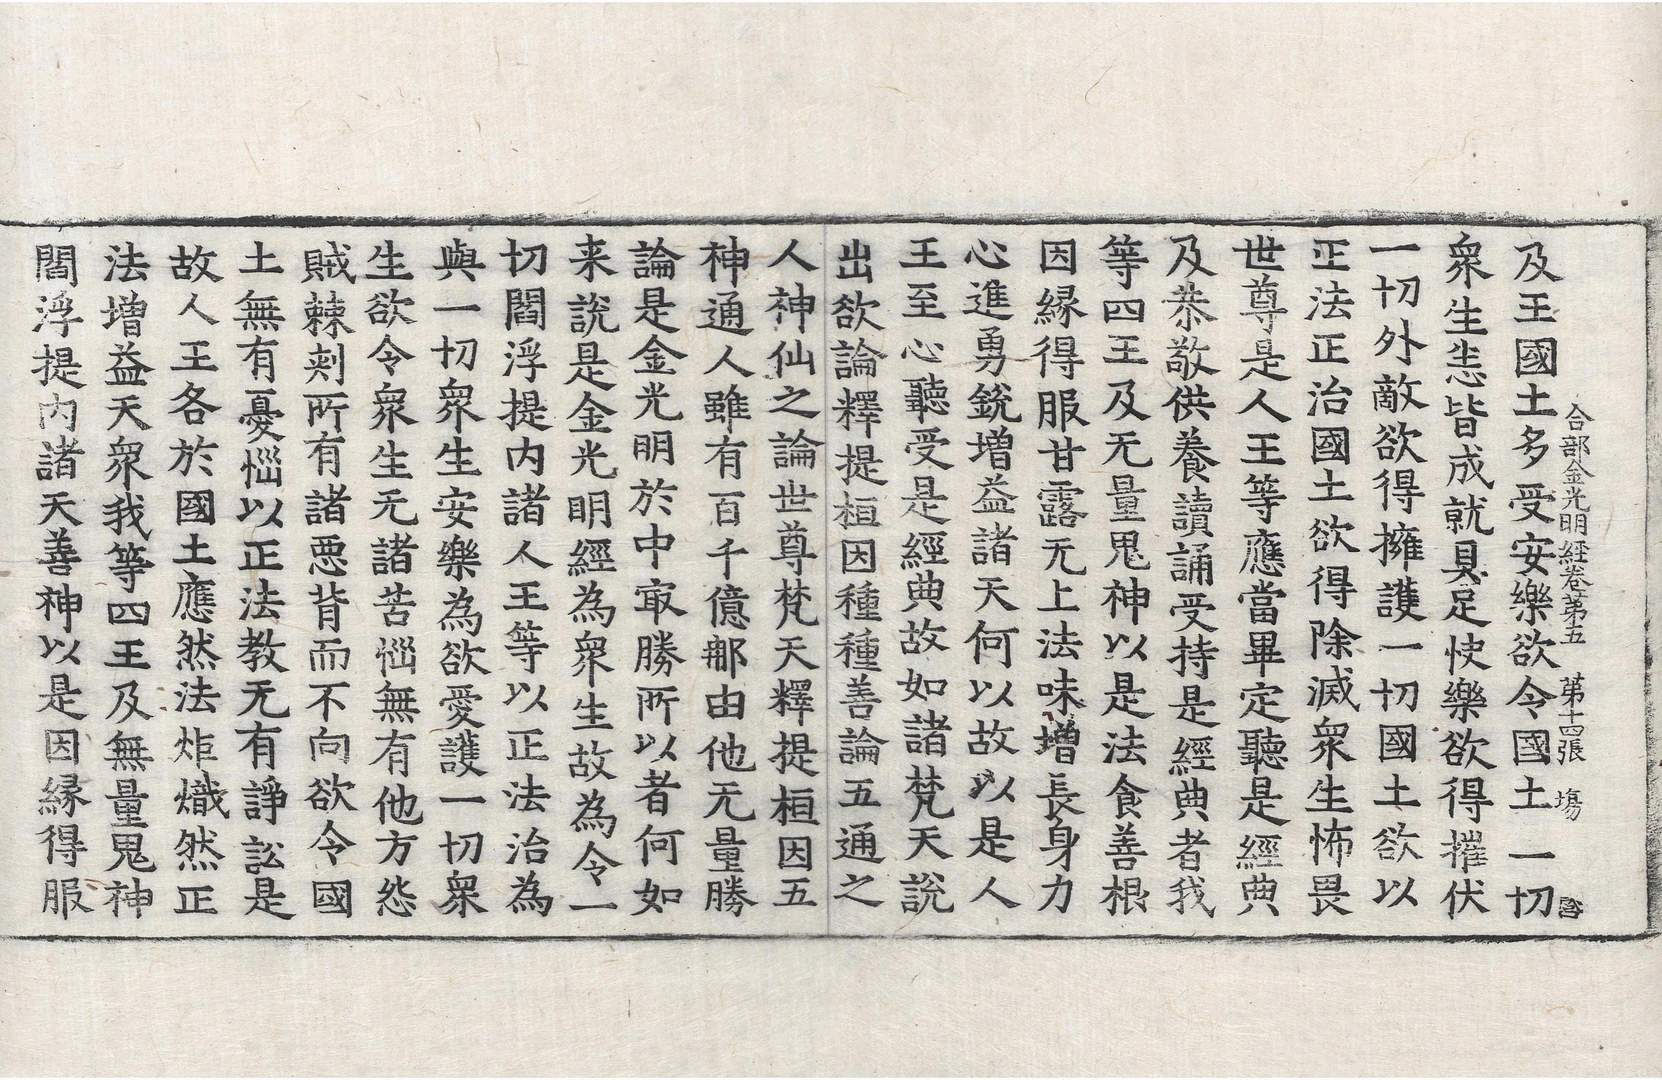 合部金光明経卷第五 第十四張 塲
及王國土多受安樂欲令國土一切
衆生悉皆成就具足快樂欲得摧伏
一切外敵欲得擁護一切國土欲以
正法正治國土欲得除滅衆生怖畏
世尊是人王等應當畢定聽是經典
及恭敬供養讀誦受持是經典者我
等四王及无量鬼神以是法食善根
因縁得服甘露无上法味增長身力
心進勇銳增益諸天何以故以是人
王至心聽受是經典故如諸梵天說
出欲論釋提桓因種種善論五通之
人神仙之論世尊梵天釋提桓因五
神通人雖有百千億那由他无量勝
論是金光明於中㝡勝所以者何如
来說是金光明經為衆生故為令一
切閻浮提内諸人王等以正法治為
與一切衆生安樂為欲愛護一切衆
生欲令衆生无諸苦惱無有他方怨
賊棘刺所有諸惡背而不向欲令國
土無有憂惱以正法教无有諍訟是
故人王各於國土應然法炬熾然正
法增益天衆我等四王及無量鬼神
閻浮提内諸天善神以是因縁得服